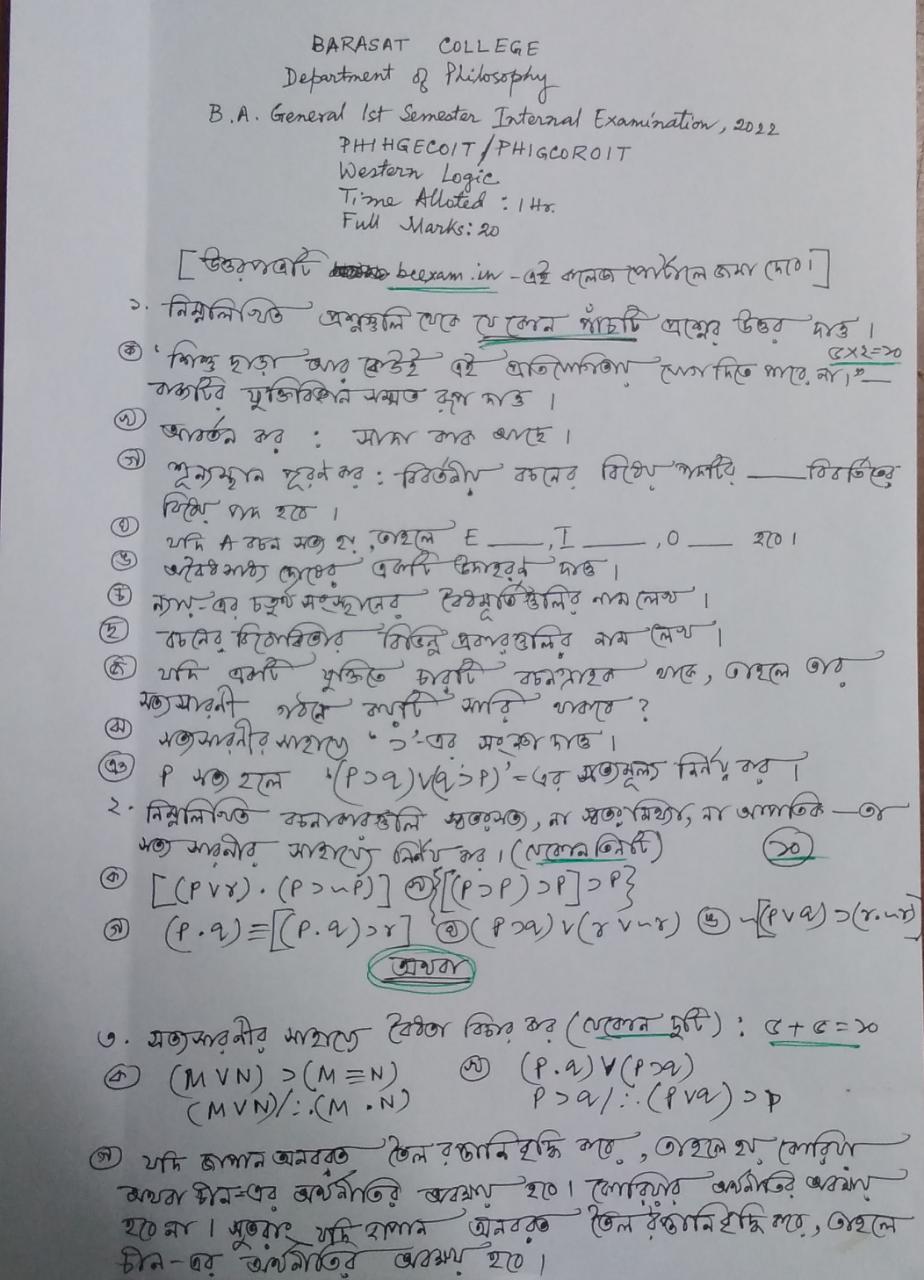 BARASAT COLLEGE
Department of Philosophy
B.A. General 1st Semester Internal Examination, 2022
PHIHGEC01T/PHIGCOR01T
Western Logic
Time Alloted : 1 Hr.
Full Marks: 20
[উত্তরপত্রটি bcexam.in - এই কলেজ পোর্টালে জমা দেবে।]
১. নিম্নলিখিত প্রশ্নগুলি থেকে যে কোন পাঁচটি প্রশ্নের উত্তর দাও।
৫×২=১০
ক) 'শিশু ছাড়া আর কেউই এই প্রতিযোগিতায় যোগ দিতে পারে না।' —
বাক্যটির যুক্তিবিজ্ঞান সম্মত রূপ দাও।
খ) আবর্তন কর : সাদা কাক আছে।
গ) শূন্যস্থান পূরণ কর : বিবর্তনীয় বচনের বিধেয় পদটির ____ বিবর্তিতের
বিধেয় পদ হবে।
ঘ) যদি A বচন সত্য হয়, তাহলে E ____, I ____, O ____ হবে।
ঙ) অবৈধসাধ্য দোষের একটি উদাহরণ দাও।
চ) ন্যায়-এর চতুর্থ সংস্থানের বৈধমূর্তিগুলির নাম লেখ।
ছ) বচনের বিরোধিতার বিভিন্ন প্রকারগুলির নাম লেখ।
জ) যদি একটি যুক্তিতে চারটি বচনগ্রাহক থাকে, তাহলে তার
সত্যসারণী গঠনে কয়টি সারি থাকবে?
ঝ) সত্যসারণীর সাহায্যে '⊃'-এর সংজ্ঞা দাও।
ঞ) P সত্য হলে '(P⊃q)∨(q⊃P)' -এর সত্যমূল্য নির্ণয় কর।
২. নিম্নলিখিত বচনাকারগুলি স্বতঃসত্য, না স্বতঃমিথ্যা, না আপতিক — তা
সত্য সারণীর সাহায্যে নির্ণয় কর। (যেকোন তিনটি) ১০
ক) [(P∨r)·(P⊃~P)] খ) {[(P⊃P)⊃P]⊃P}
গ) (P·q)≡[(P·q)⊃r] ঘ) (P⊃q)∨(r∨~r) ঙ) ~[(P∨q)⊃(r·~r)]
অথবা
৩. সত্যসারণীর সাহায্যে বৈধতা বিচার কর (যেকোন দুটি) : ৫+৫=১০
ক) (M∨N)⊃(M≡N) খ) (P·q)∨(P⊃q)
(M∨N)/∴(M·N) P⊃q/∴(P∨q)⊃P
গ) যদি জাপান অনবরত তৈল রপ্তানি বৃদ্ধি করে, তাহলে হয় কোরিয়া
অথবা চীন-এর অর্থনীতির অবক্ষয় হবে। কোরিয়ার অর্থনীতির অবক্ষয়
হবে না। সুতরাং যদি জাপান অনবরত তৈল রপ্তানি বৃদ্ধি করে, তাহলে
চীন-এর অর্থনীতির অবক্ষয় হবে।